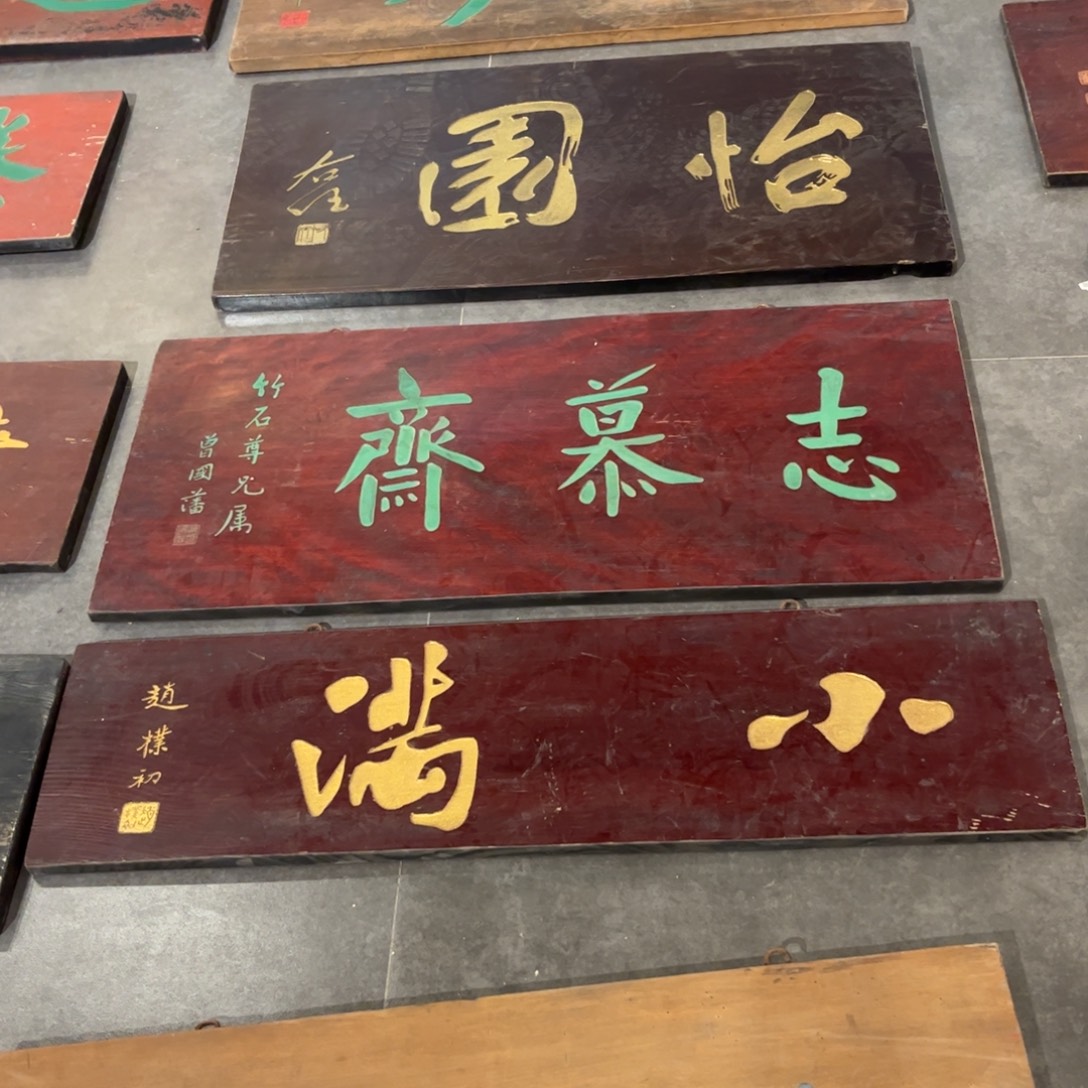 怡園
右任
志慕齋
竹石尊兄属
曾國藩
小满
趙樸初